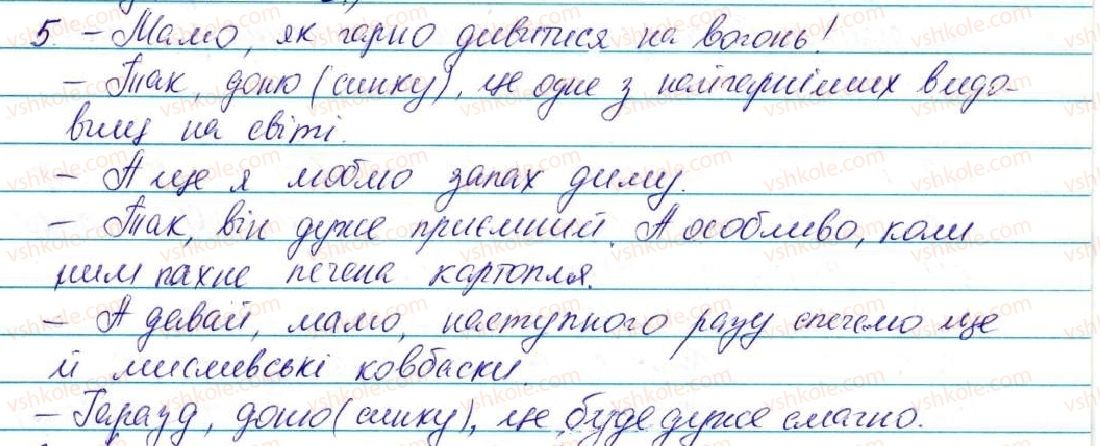 5. – Мамо, як гарно дивитися на вогонь!
– Так, доню (синку), це одне з найгарніших видо-
вищ на світі.
– А ще я люблю запах диму.
– Так, він дуже приємний. А особливо, коли
ним пахне печена картопля.
– А давай, мамо, наступного разу спечемо ще
й мисливські ковбаски.
– Гаразд, доню (синку), це буде дуже смачно.